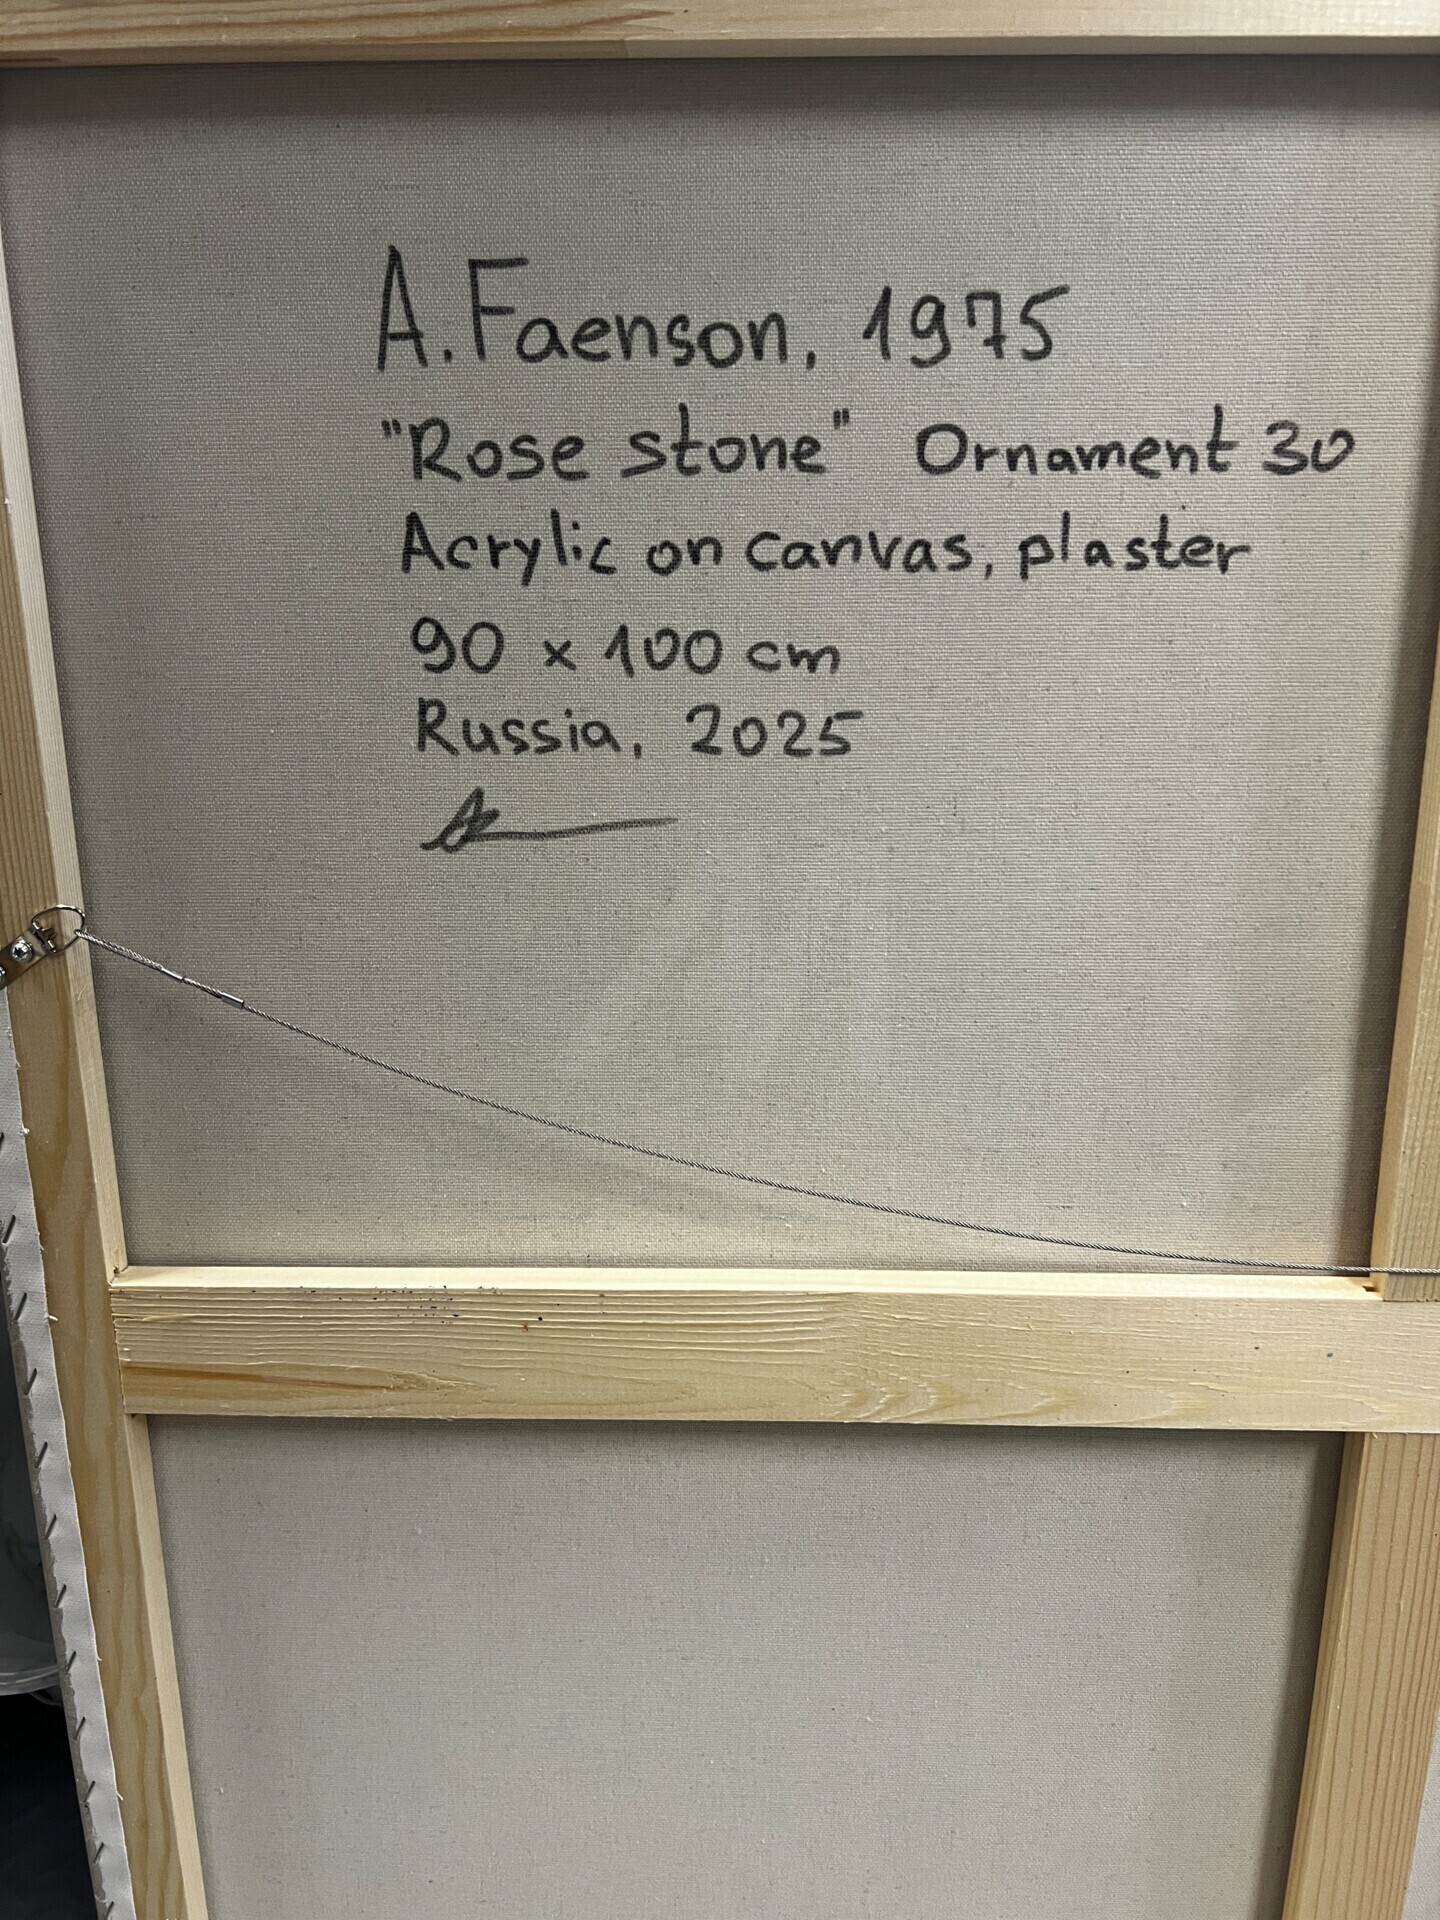 A. Faenson, 1975
"Rose stone" Ornament 30
Acrylic on canvas, plaster
90 x 100 cm
Russia, 2025